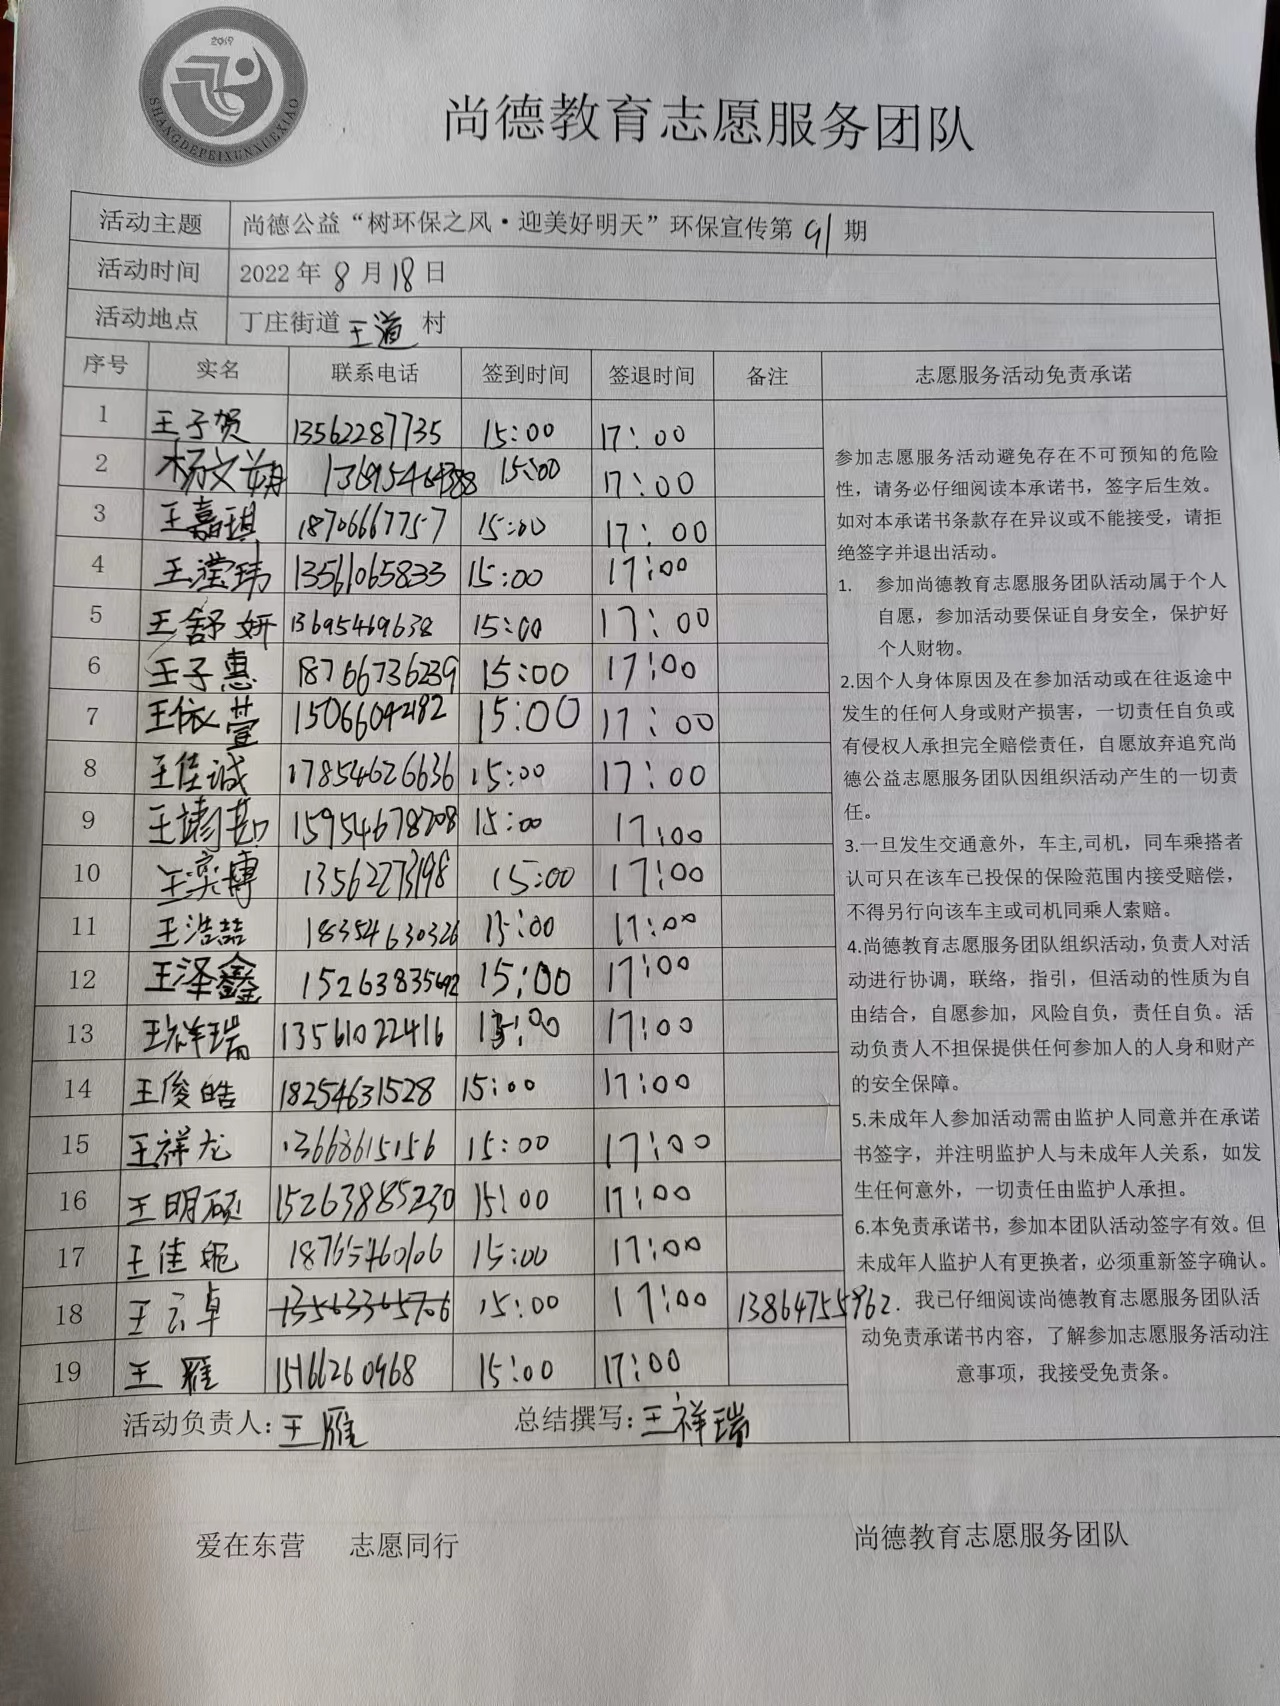 2019
SHANGDEPEIXUNXUEXIAO
尚德教育志愿服务团队
活动主题 尚德公益“树环保之风·迎美好明天”环保宣传第91期
活动时间 2022年8月18日
活动地点 丁庄街道王道村
序号 实名 联系电话 签到时间 签退时间 备注 志愿服务活动免责承诺
1 王子贺 13562287735 15:00 17:00
2 杨文朔 15:00 17:00
3 王嘉琪 18706667757 15:00 17:00
4 王滢玮 13561065833 15:00 17:00
5 王舒妍 13695469638 15:00 17:00
6 王子惠 18766736239 15:00 17:00
7 王依萱 15066092192 15:00 17:00
8 王佳诚 17854626636 15:00 17:00
9 王 15954678708 15:00 17:00
10 王奕博 13562273198 15:00 17:00
11 王浩喆 18354630326 15:00 17:00
12 王泽鑫 15263835692 15:00 17:00
13 王祥瑞 13561022416 15:00 17:00
14 王俊皓 18254631528 15:00 17:00
15 王祥龙 13668615156 15:00 17:00
16 王明硕 15263885230 15:00 17:00
17 王佳妮 18765460106 15:00 17:00
18 王云卓 13563365706 15:00 17:00 13864755962
19 王雁 15166260968 15:00 17:00
参加志愿服务活动避免存在不可预知的危险
性，请务必仔细阅读本承诺书，签字后生效。
如对本承诺书条款存在异议或不能接受，请拒
绝签字并退出活动。
1. 参加尚德教育志愿服务团队活动属于个人
自愿，参加活动要保证自身安全，保护好
个人财物。
2.因个人身体原因及在参加活动或在往返途中
发生的任何人身或财产损害，一切责任自负或
有侵权人承担完全赔偿责任，自愿放弃追究尚
德公益志愿服务团队因组织活动产生的一切责
任。
3.一旦发生交通意外，车主,司机，同车乘搭者
认可只在该车已投保的保险范围内接受赔偿，
不得另行向该车主或司机同乘人索赔。
4.尚德教育志愿服务团队组织活动,负责人对活
动进行协调，联络，指引，但活动的性质为自
由结合，自愿参加，风险自负，责任自负。活
动负责人不担保提供任何参加人的人身和财产
的安全保障。
5.未成年人参加活动需由监护人同意并在承诺
书签字，并注明监护人与未成年人关系，如发
生任何意外，一切责任由监护人承担。
6.本免责承诺书，参加本团队活动签字有效。但
未成年人监护人有更换者，必须重新签字确认。
我已仔细阅读尚德教育志愿服务团队活
动免责承诺书内容，了解参加志愿服务活动注
意事项，我接受免责条。
活动负责人:王雁 总结撰写:王祥瑞
爱在东营 志愿同行 尚德教育志愿服务团队